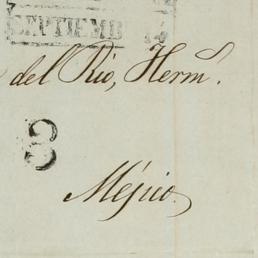 SEPTIEMB
del Rio, Hermˢ.
8
Méjico.